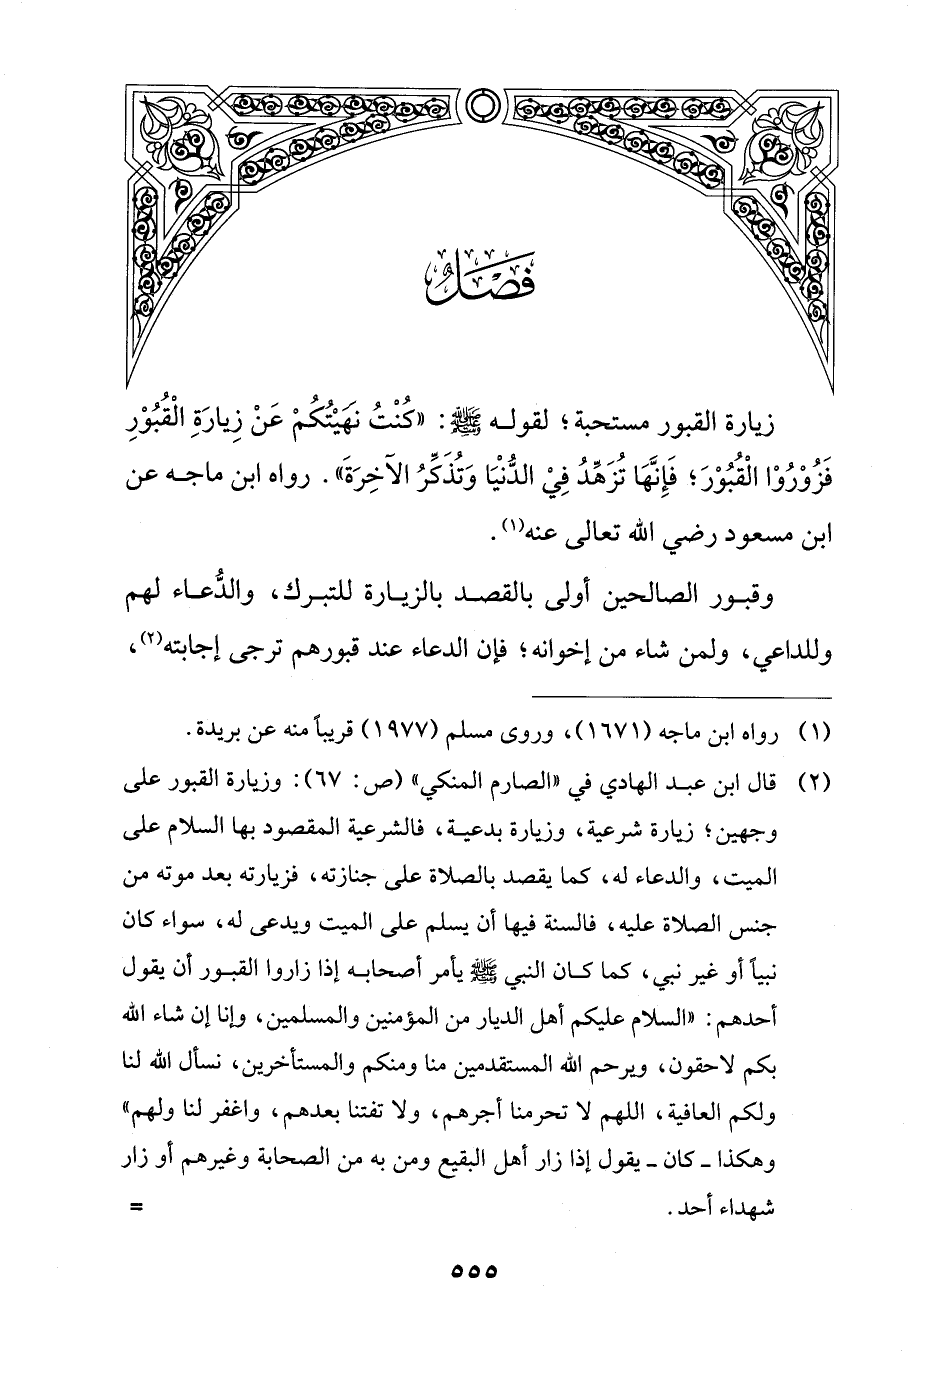 فَصْلٌ
زيارة القبور مستحبة؛ لقوله ﷺ: «كُنْتُ نَهَيْتُكُمْ عَنْ زِيارَةِ الْقُبُوْرِ
فَزُوْرُوْا الْقُبُوْرَ؛ فَإِنَّهَا تُزَهِّدُ فِيْ الدُّنْيَا وَتُذَكِّرُ الآخِرَةَ». رواه ابن ماجه عن
ابن مسعود رضي الله تعالى عنه(١).
وقبور الصالحين أولى بالقصد بالزيارة للتبرك، والدُّعاء لهم
وللداعي، ولمن شاء من إخوانه؛ فإن الدعاء عند قبورهم ترجى إجابته(٢)،
(١) رواه ابن ماجه (١٦٧١)، وروى مسلم (١٩٧٧) قريباً منه عن بريدة.
(٢) قال ابن عبد الهادي في «الصارم المنكي» (ص: ٦٧): وزيارة القبور على
وجهين؛ زيارة شرعية، وزيارة بدعية، فالشرعية المقصود بها السلام على
الميت، والدعاء له، كما يقصد بالصلاة على جنازته، فزيارته بعد موته من
جنس الصلاة عليه، فالسنة فيها أن يسلم على الميت ويدعى له، سواء كان
نبياً أو غير نبي، كما كان النبي ﷺ يأمر أصحابه إذا زاروا القبور أن يقول
أحدهم: «السلام عليكم أهل الديار من المؤمنين والمسلمين، وإنا إن شاء الله
بكم لاحقون، ويرحم الله المستقدمين منا ومنكم والمستأخرين، نسأل الله لنا
ولكم العافية، اللهم لا تحرمنا أجرهم، ولا تفتنا بعدهم، واغفر لنا ولهم»
وهكذا ـ كان ـ يقول إذا زار أهل البقيع ومن به من الصحابة وغيرهم أو زار
شهداء أحد. =
٥٥٥